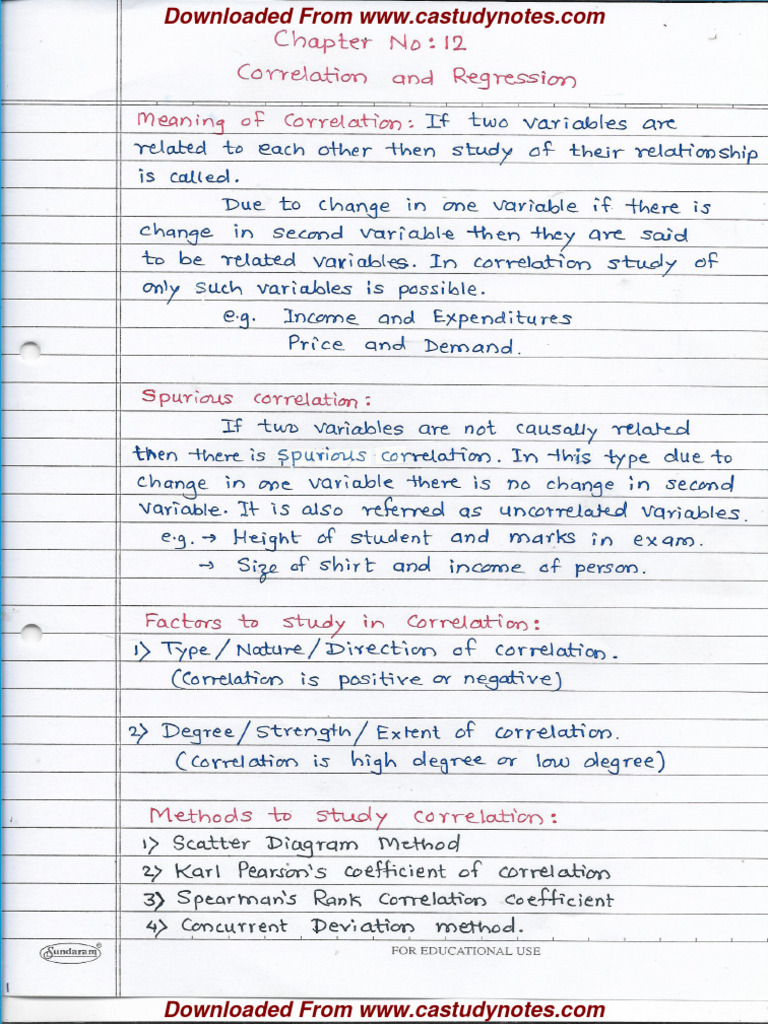 Downloaded From www.castudynotes.com
Chapter No: 12
Correlation and Regression
Meaning of Correlation: If two variables are
related to each other then study of their relationship
is called.
Due to change in one variable if there is
change in second variable then they are said
to be related variables. In correlation study of
only such variables is possible.
e.g. Income and Expenditures
Price and Demand.
Spurious correlation:
If two variables are not causally related
then there is spurious correlation. In this type due to
change in one variable there is no change in second
variable. It is also referred as uncorrelated variables.
e.g. → Height of student and marks in exam.
→ Size of shirt and income of person.
Factors to study in Correlation:
1) Type/Nature/Direction of correlation.
(Correlation is positive or negative)
2) Degree/Strength/Extent of correlation.
(Correlation is high degree or low degree)
Methods to study correlation:
1) Scatter Diagram Method
2) Karl Pearson's coefficient of correlation
3) Spearman's Rank Correlation Coefficient
4) Concurrent Deviation method.
Sundaram® FOR EDUCATIONAL USE
Downloaded From www.castudynotes.com